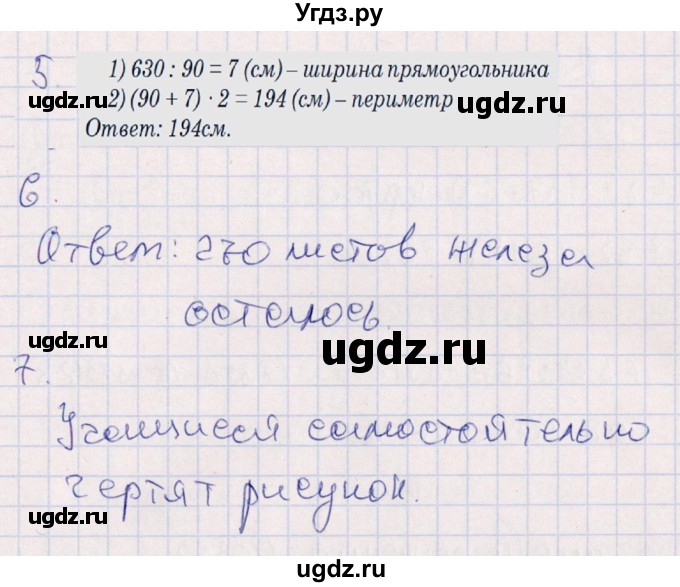 Угдз.ру
5
1) 630 : 90 = 7 (см) – ширина прямоугольника
ugdz.ru
2) (90 + 7) · 2 = 194 (см) – периметр
ugdz.ru
Ответ: 194см.
6.
Ответ: 270 листов железа
осталось.
ugdz.ru
ugdz.ru
7.
Учащиеся самостоятельно
чертят рисунок.
ugdz.ru
ugdz.ru